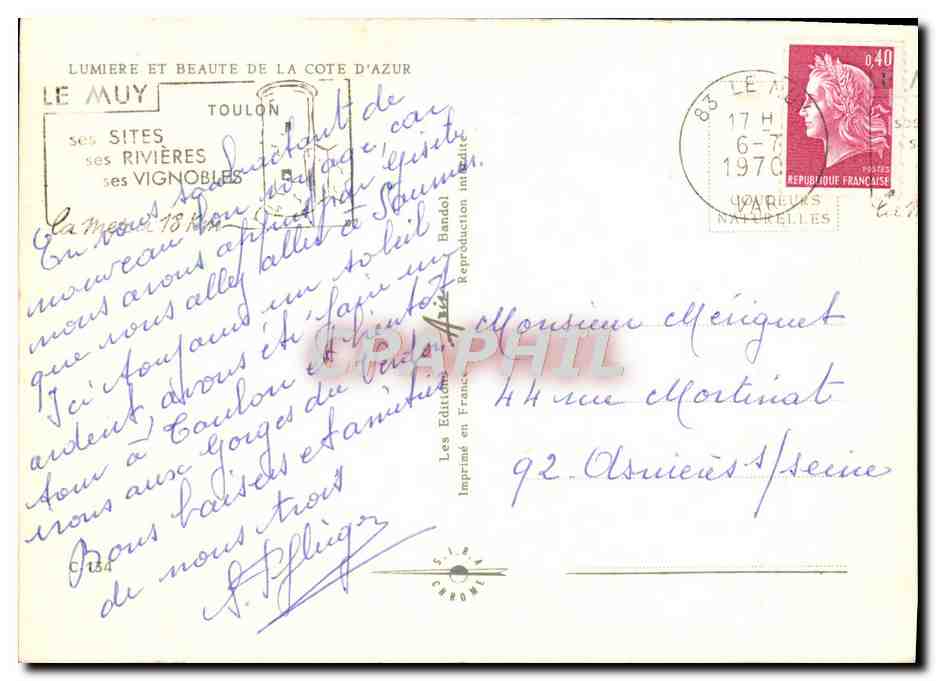 LUMIERE ET BEAUTE DE LA COTE D'AZUR
LE MUY
TOULON
ses SITES
ses RIVIÈRES
ses VIGNOBLES
La mer à 18 Km
83 LE MUY
17 H
6-7
1970
VAR
COULEURS
NATURELLES
0,40
POSTES
REPUBLIQUE FRANÇAISE
En vous souhaitant de
nouveau bon voyage, car
nous avons appris par Gisèle
que vous alliez aller à Saumur.
Ici toujours un soleil
ardent, avons été faire un
tour à Toulon et bientôt
irons aux Gorges du Verdon
Bons baisers et amitiés
de nous trois
Les Editions Aris Bandol
Imprimé en France Reproduction interdite
Monsieur Mériguet
44 rue Mortinat
92. Asnières s/seine
C 154
S.I.R.A.
CHROME
CPAPHIL